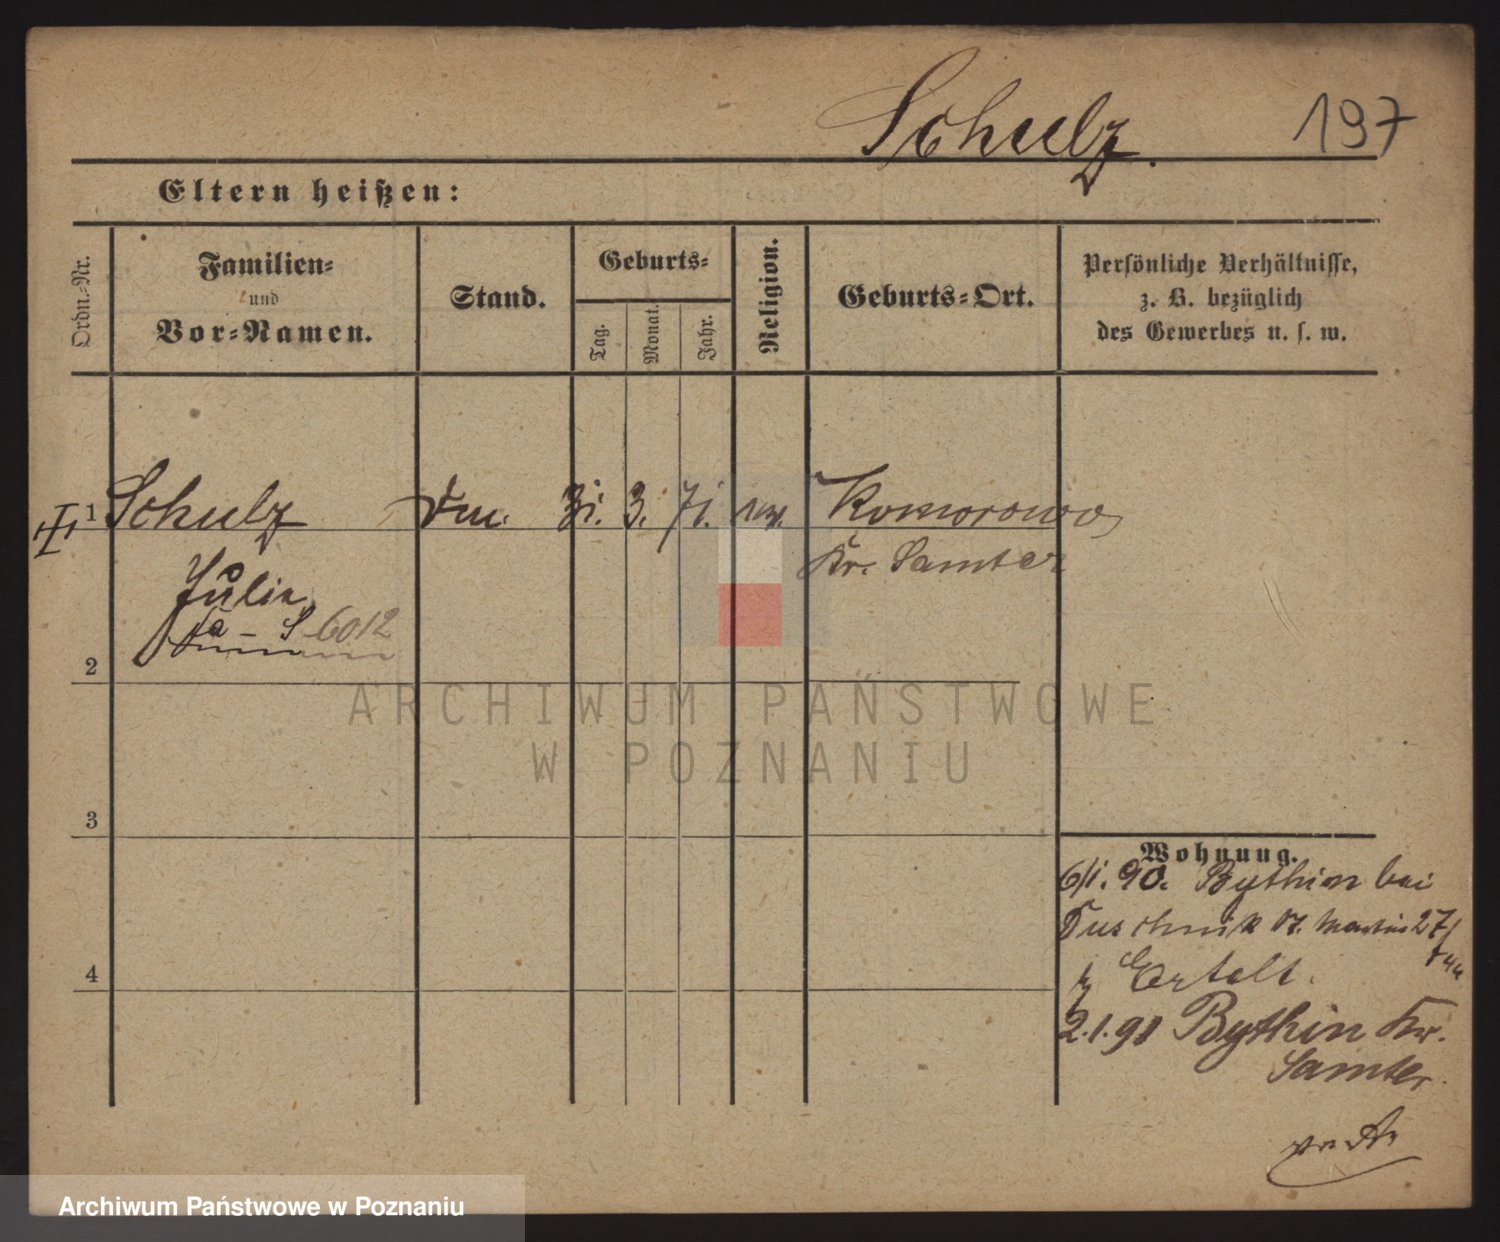 Schulz.
197
Eltern heißen:
Ordn.-Nr.
Familien-
und
Vor-Namen.
Stand.
Geburts-
Tag.
Monat.
Jahr.
Religion.
Geburts-Ort.
Persönliche Verhältnisse,
z. B. bezüglich
des Gewerbes u. s. w.
1 Schulz 3. 71. Komorowo
Kr. Samter
Julie
6012
2
3
4
Wohnung.
6/1. 90. Bythin bei
St. Martin 27/
2.1.91 Bythin Kr.
Samter.
ARCHIWUM PAŃSTWOWE
W POZNANIU
Archiwum Państwowe w Poznaniu